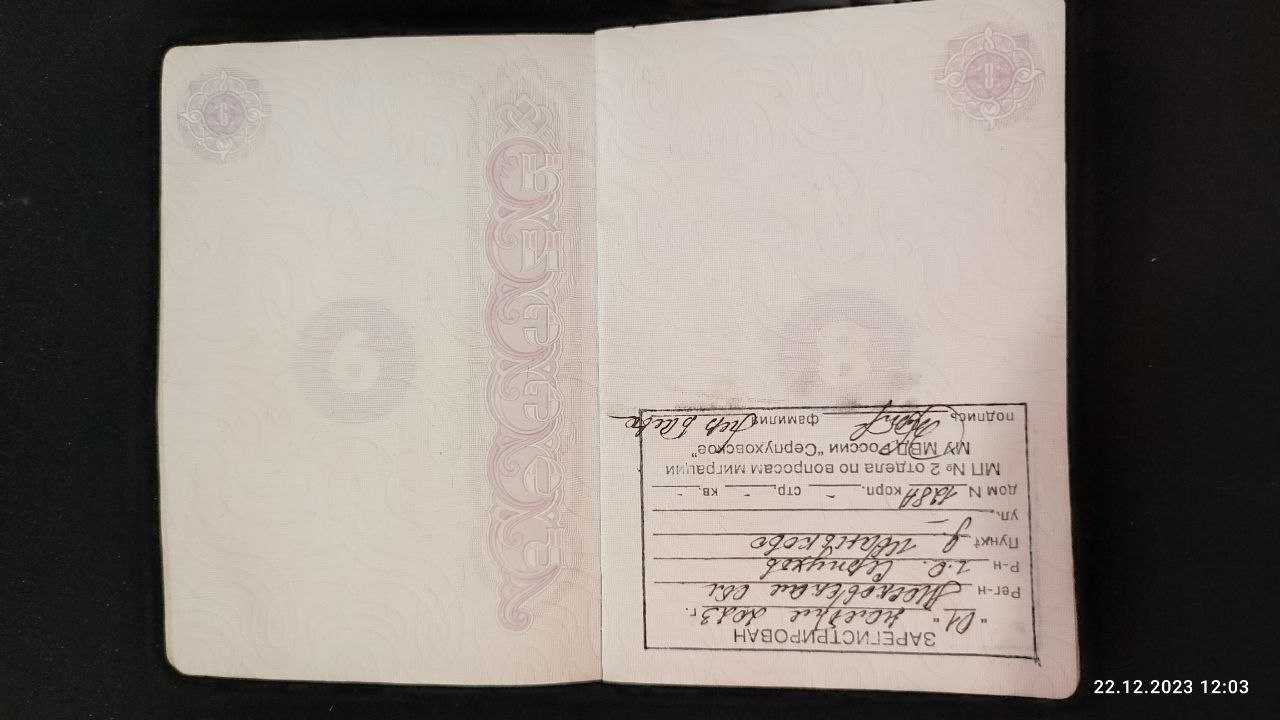 ЗАРЕГИСТРИРОВАН
"01" ноября 2023 г.
Рег-н Московская обл
Р-н г.о. Серпухов
Пункт д. Иваньково
ул. –
дом N 128А корп. – стр. – кв. –
МП № 2 отдела по вопросам миграции
МУ МВД России "Серпуховское"
подпись фамилия
6
8
6
8
22.12.2023 12:03